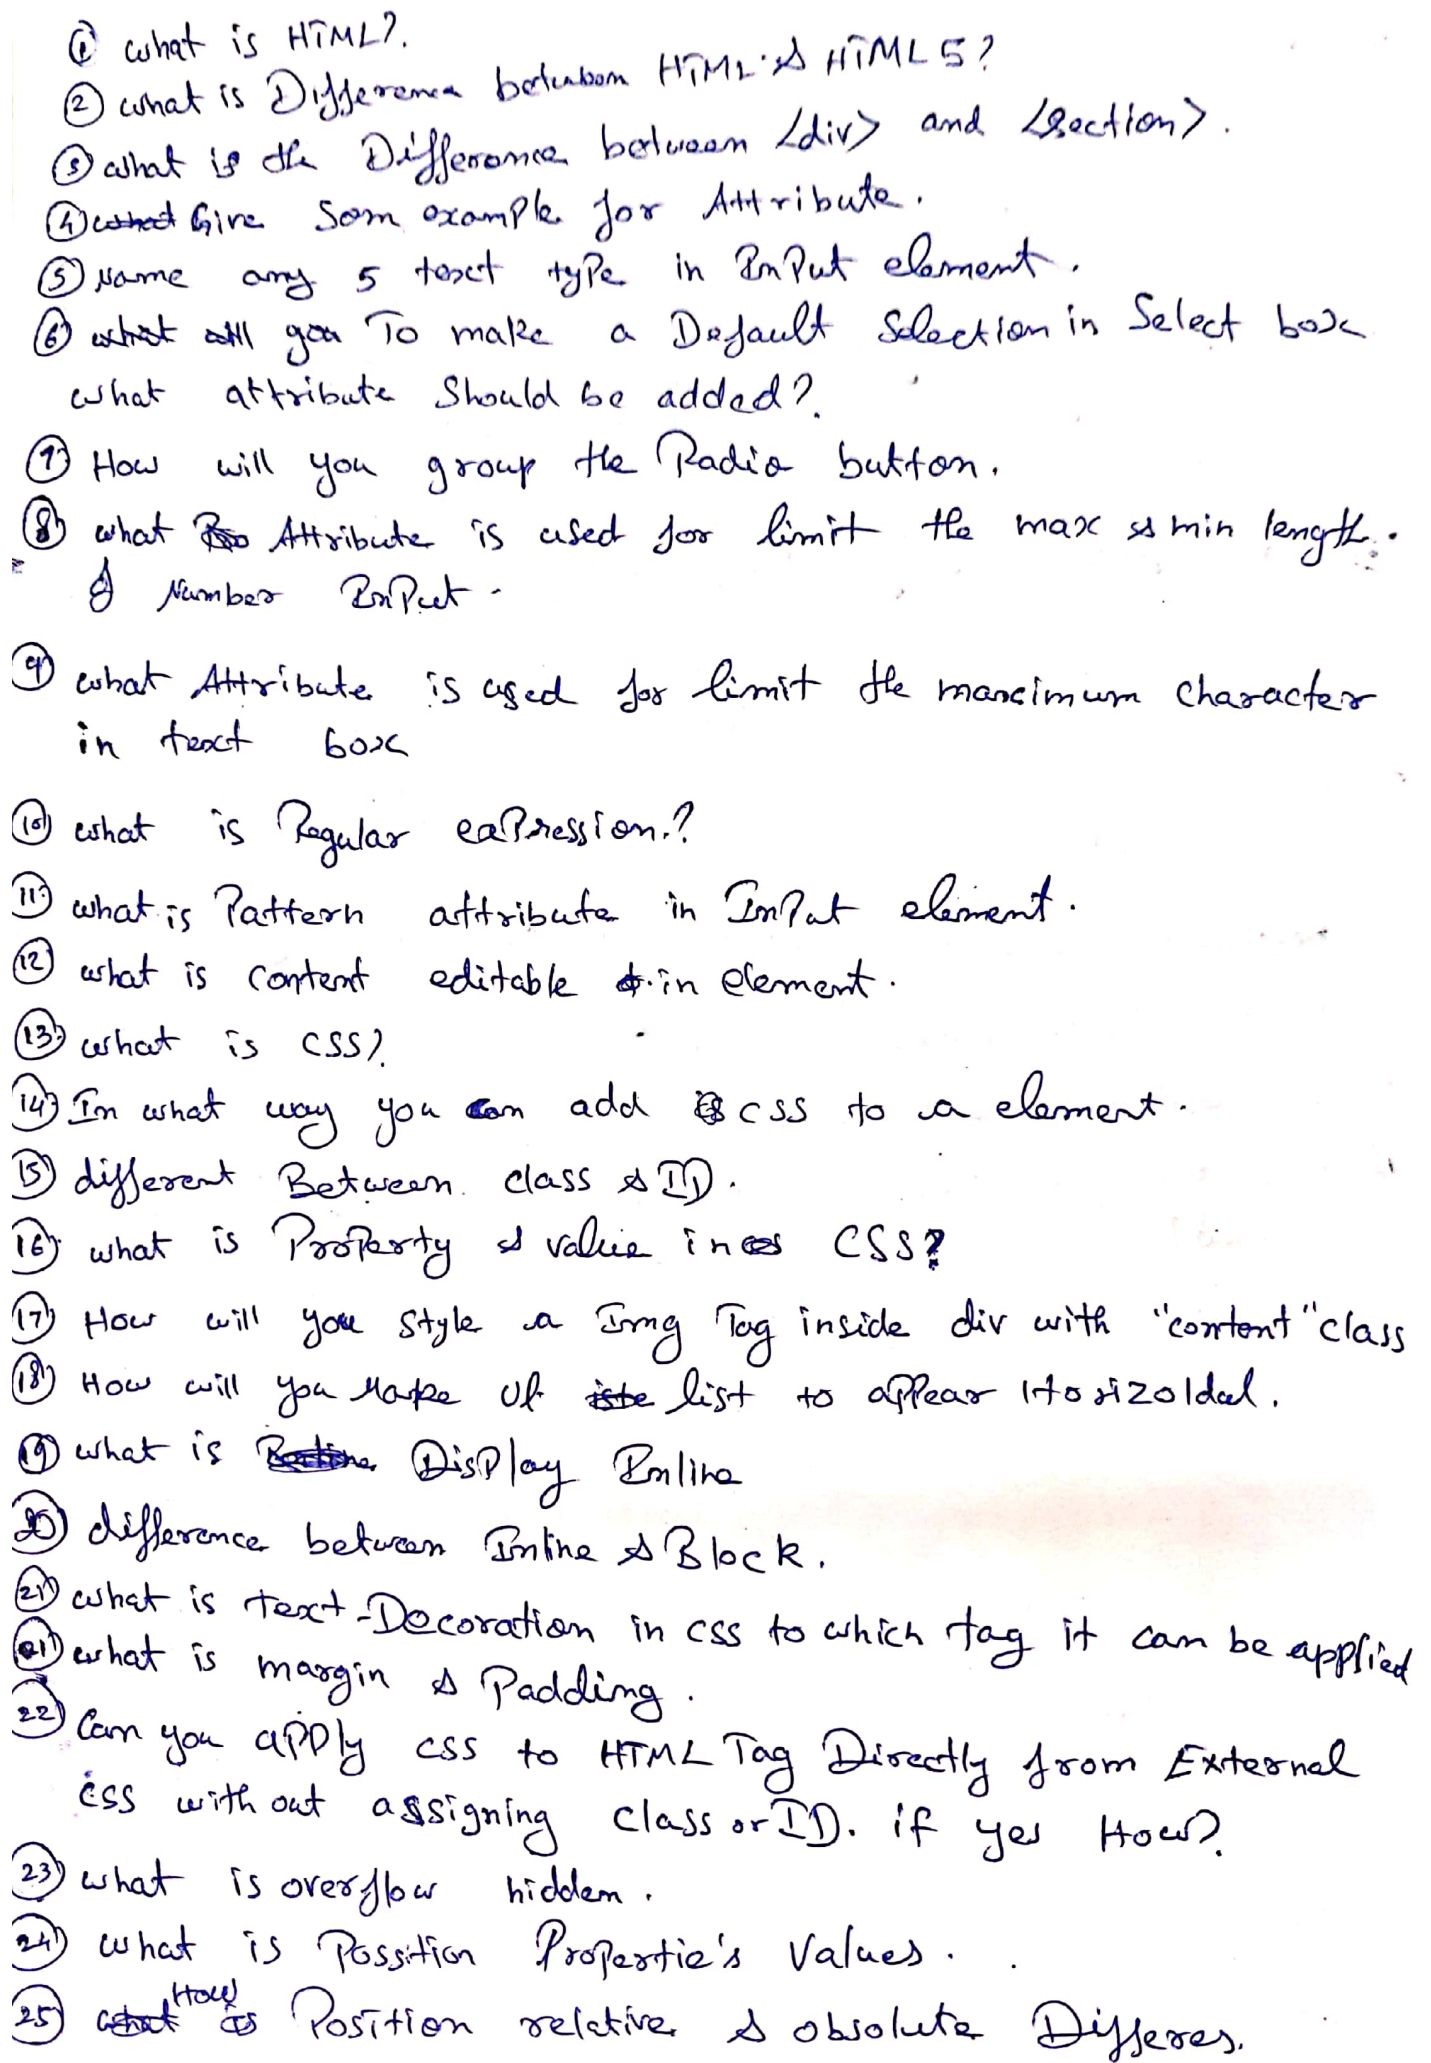 ① what is HTML?.
② what is Difference between HTML & HTML 5?
③ what is the Difference between <div> and <section>.
④ Give Som example for Attribute.
⑤ Name any 5 text type in InPut element.
⑥ To make a Default Selection in Select box
what attribute Should be added?
⑦ How will you group the Radio button.
⑧ what Attribute is used for limit the max & min length.
of Number InPut.
⑨ what Attribute is used for limit the maximum character
in text box
⑩ what is Regular exPression.?
⑪ what is Pattern attribute in InPut element.
⑫ what is content editable in element.
⑬ what is CSS?
⑭ In what way you can add css to a element.
⑮ different Between class & ID.
⑯ what is ProPerty & value in CSS?
⑰ How will you Style a Img Tag inside div with "content" class
⑱ How will you Make Ul list to aPPear Horizoldal.
⑲ what is DisPlay Inline
⑳ difference between Inline & Block.
㉑ what is text-Decoration in css to which tag it can be applied
㉑ what is margin & Padding.
㉒ Can you aPPly css to HTML Tag Directly from External
css with out assigning class or ID. if yes How?
㉓ what is overflow hidden.
㉔ what is Possition ProPertie's Values.
㉕ How Position relative & obsolute Differes.